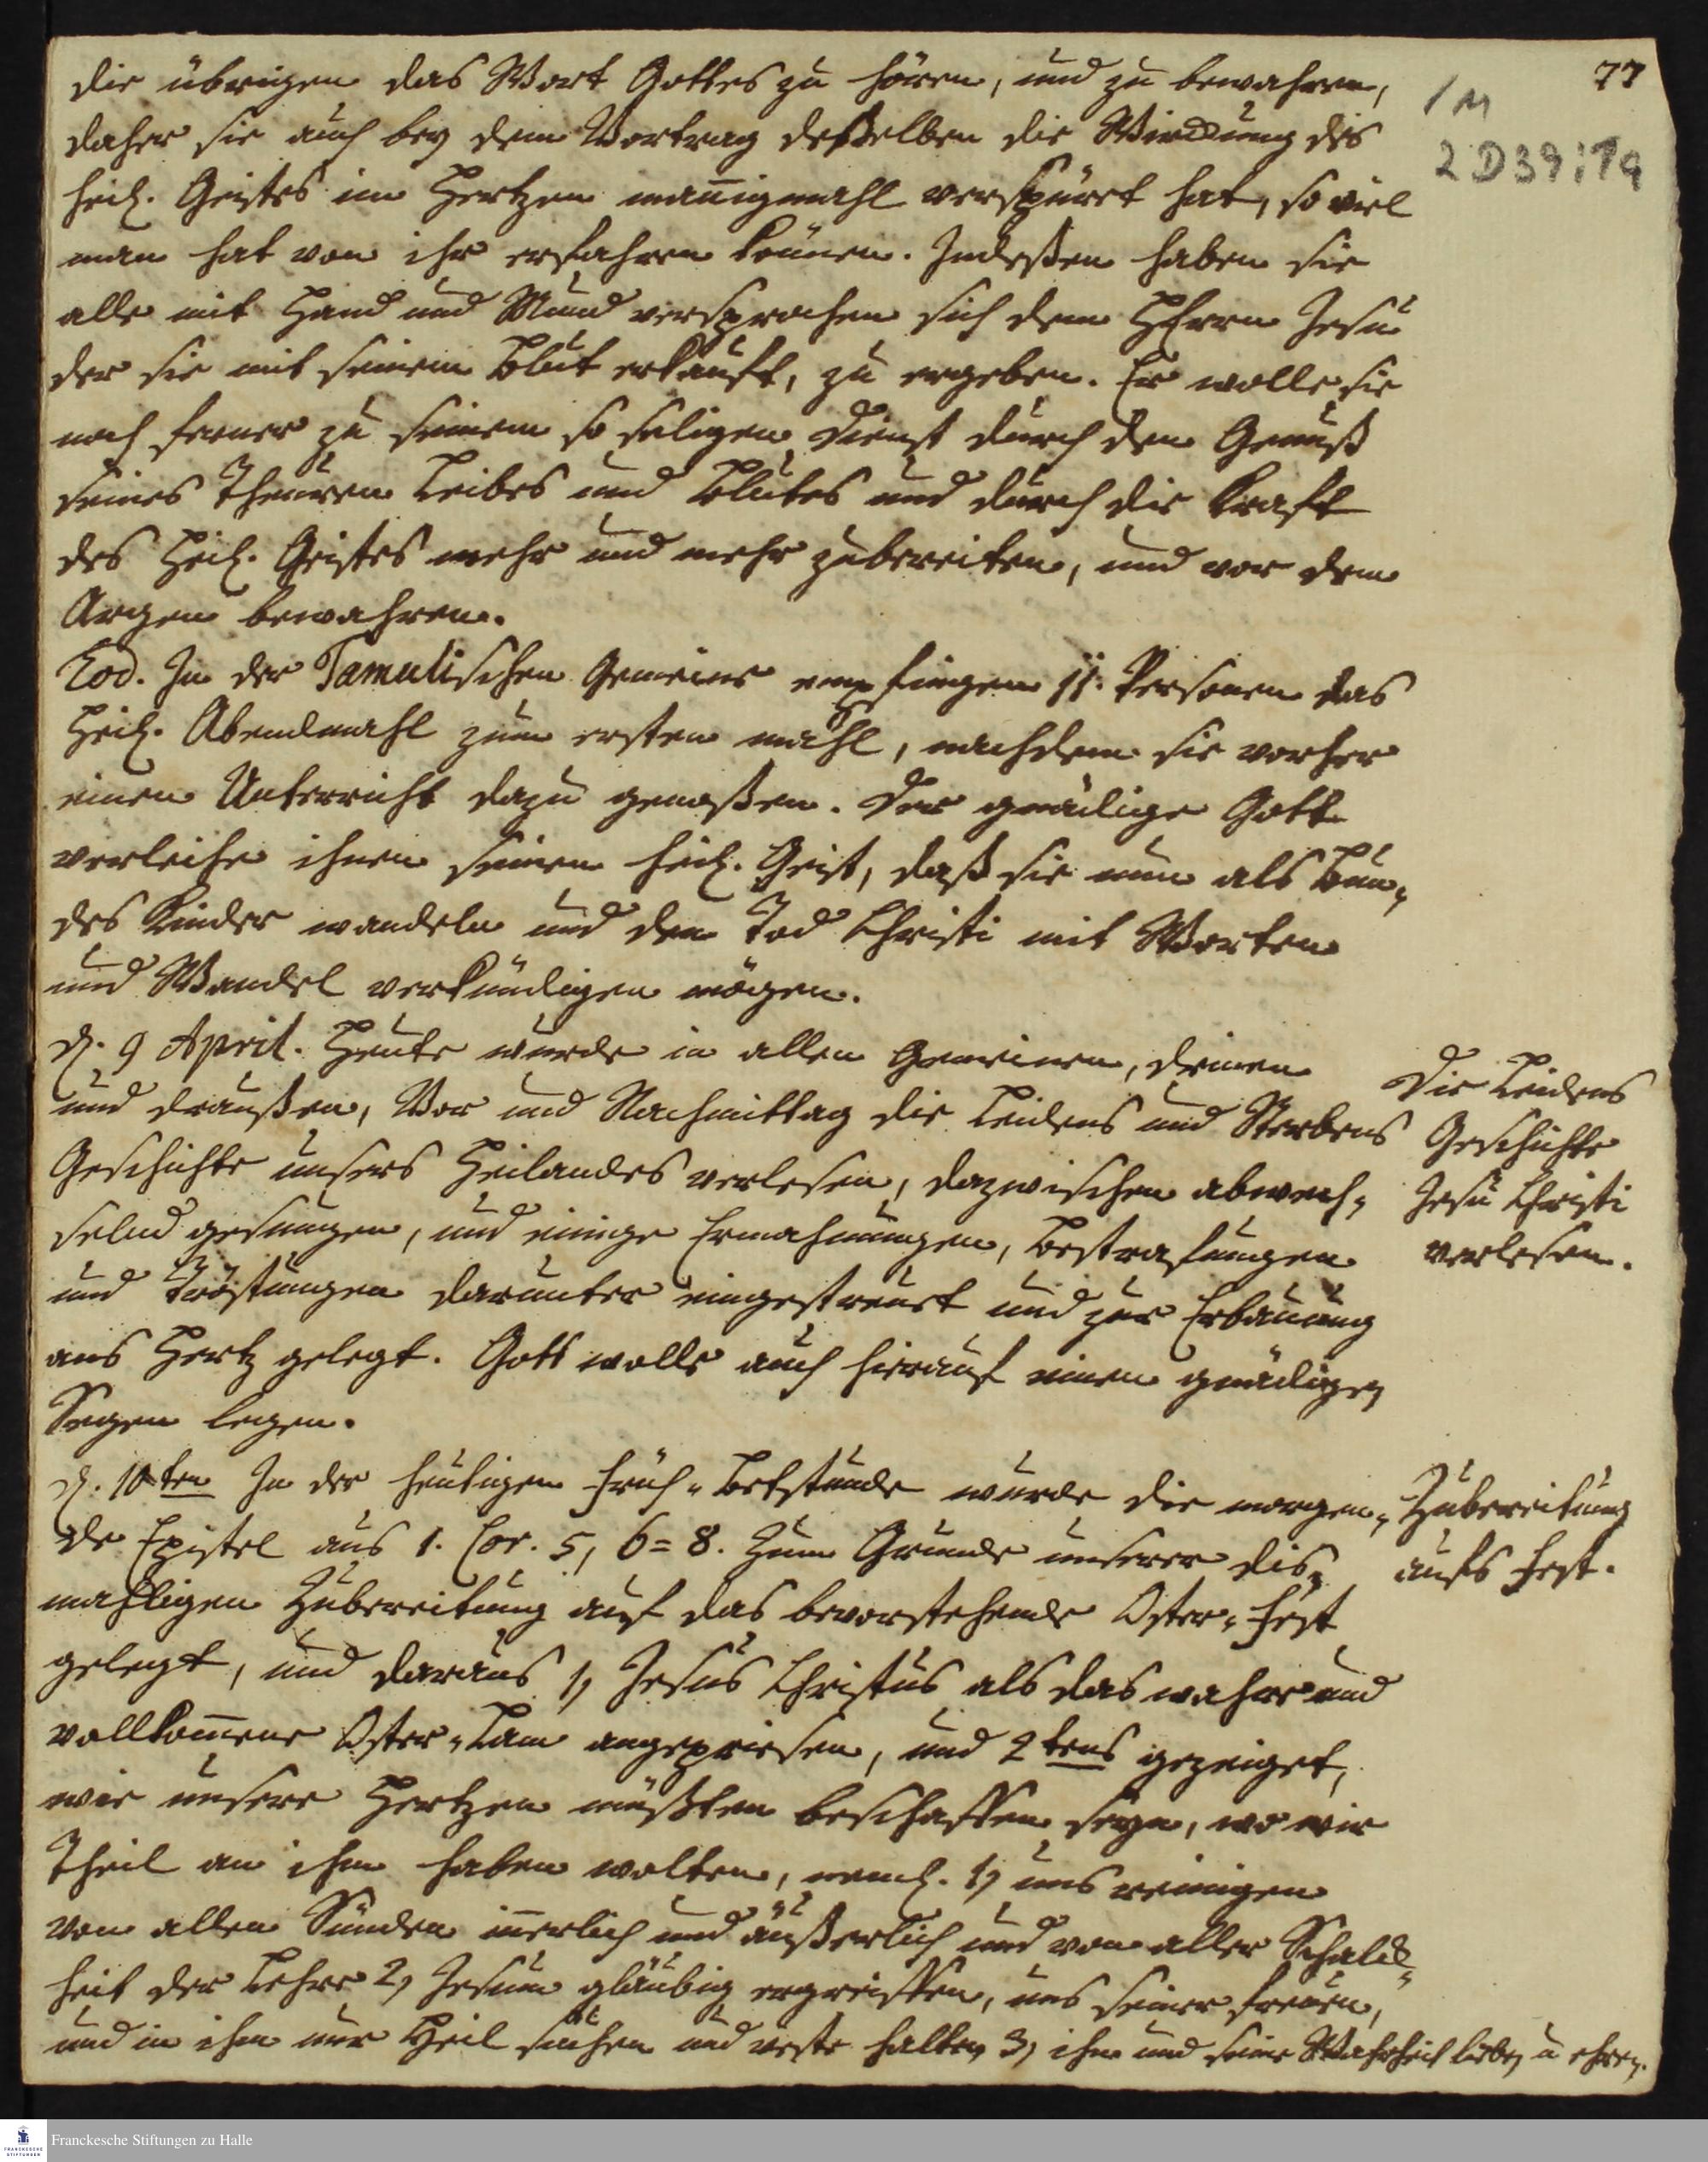 77
1 M
2 D 39 : 19
die übrigen das Wort Gottes zu hören, und zu bewahren,
daher sie auch bey dem Vortrag deßelben die Wirckung des
heil. Geistes im Hertzen mannigmahl verspüret hat, so viel
man hat von ihr erfahren können. Indeßen haben sie
alle mit Hand und Mund versprochen sich dem HErrn Jesu
der sie mit seinem Blut erkauft, zu ergeben. Er wolle sie
noch ferner zu seinem so seligen Dienst durch den Genuß
seines Theuren Leibes und Blutes und durch die Kraft
des Heil. Geistes mehr und mehr zubereiten, und vor dem
Argen bewahren.
Eod. In der Tamulischen Gemeine empfingen 11. Personen das
Heil. Abendmahl zum ersten mahl, nachdem sie vorher
einen Unterricht dazu genoßen. Der gnädige Gott
verleihe ihnen seinen heil. Geist, daß sie nun als Bun-
des Kinder wandeln und den Tod Christi mit Worten
und Wandel verkündigen mögen.
d. 9 April. Heute wurde in allen Gemeinen, drinnen
und draußen, Vor und Nachmittag die Leidens und Sterbens
Geschichte unsers Heilandes verlesen, dazwischen abwech-
selnd gesungen, und einige Ermahnungen, Bestrafungen
und Tröstungen darunter eingestreuet und zur Erbauung
ans Hertz gelegt. Gott wolle auch hierauf einen gnädigen
Segen legen.
Die Leidens
Geschichte
Jesu Christi
verlesen.
d. 10ten In der heutigen Früh-Betstunde wurde die morgen-
de Epistel aus 1. Cor. 5, 6=8. zum Grunde unserer dis-
mahligen Zubereitung auf das bevorstehende Oster-Fest
gelegt, und daraus 1, Jesus Christus als das wahre und
vollkommene Oster-Lam angepriesen, und 2tens gezeiget,
wie unsere Hertzen müßten beschaffen seyn, wo wir
Theil an ihm haben wolten, neml. 1, uns reinigen
von allen Sünden innerlich und äußerlich und von aller Schalck-
heit der Lehre 2, Jesum gläubig ergreiffen, uns seiner freuen,
und in ihm nur Heil suchen und veste halten 3, ihn und seine Wahrheit lieben u ehren.
Zubereitung
aufs Fest.
Franckesche Stiftungen zu Halle